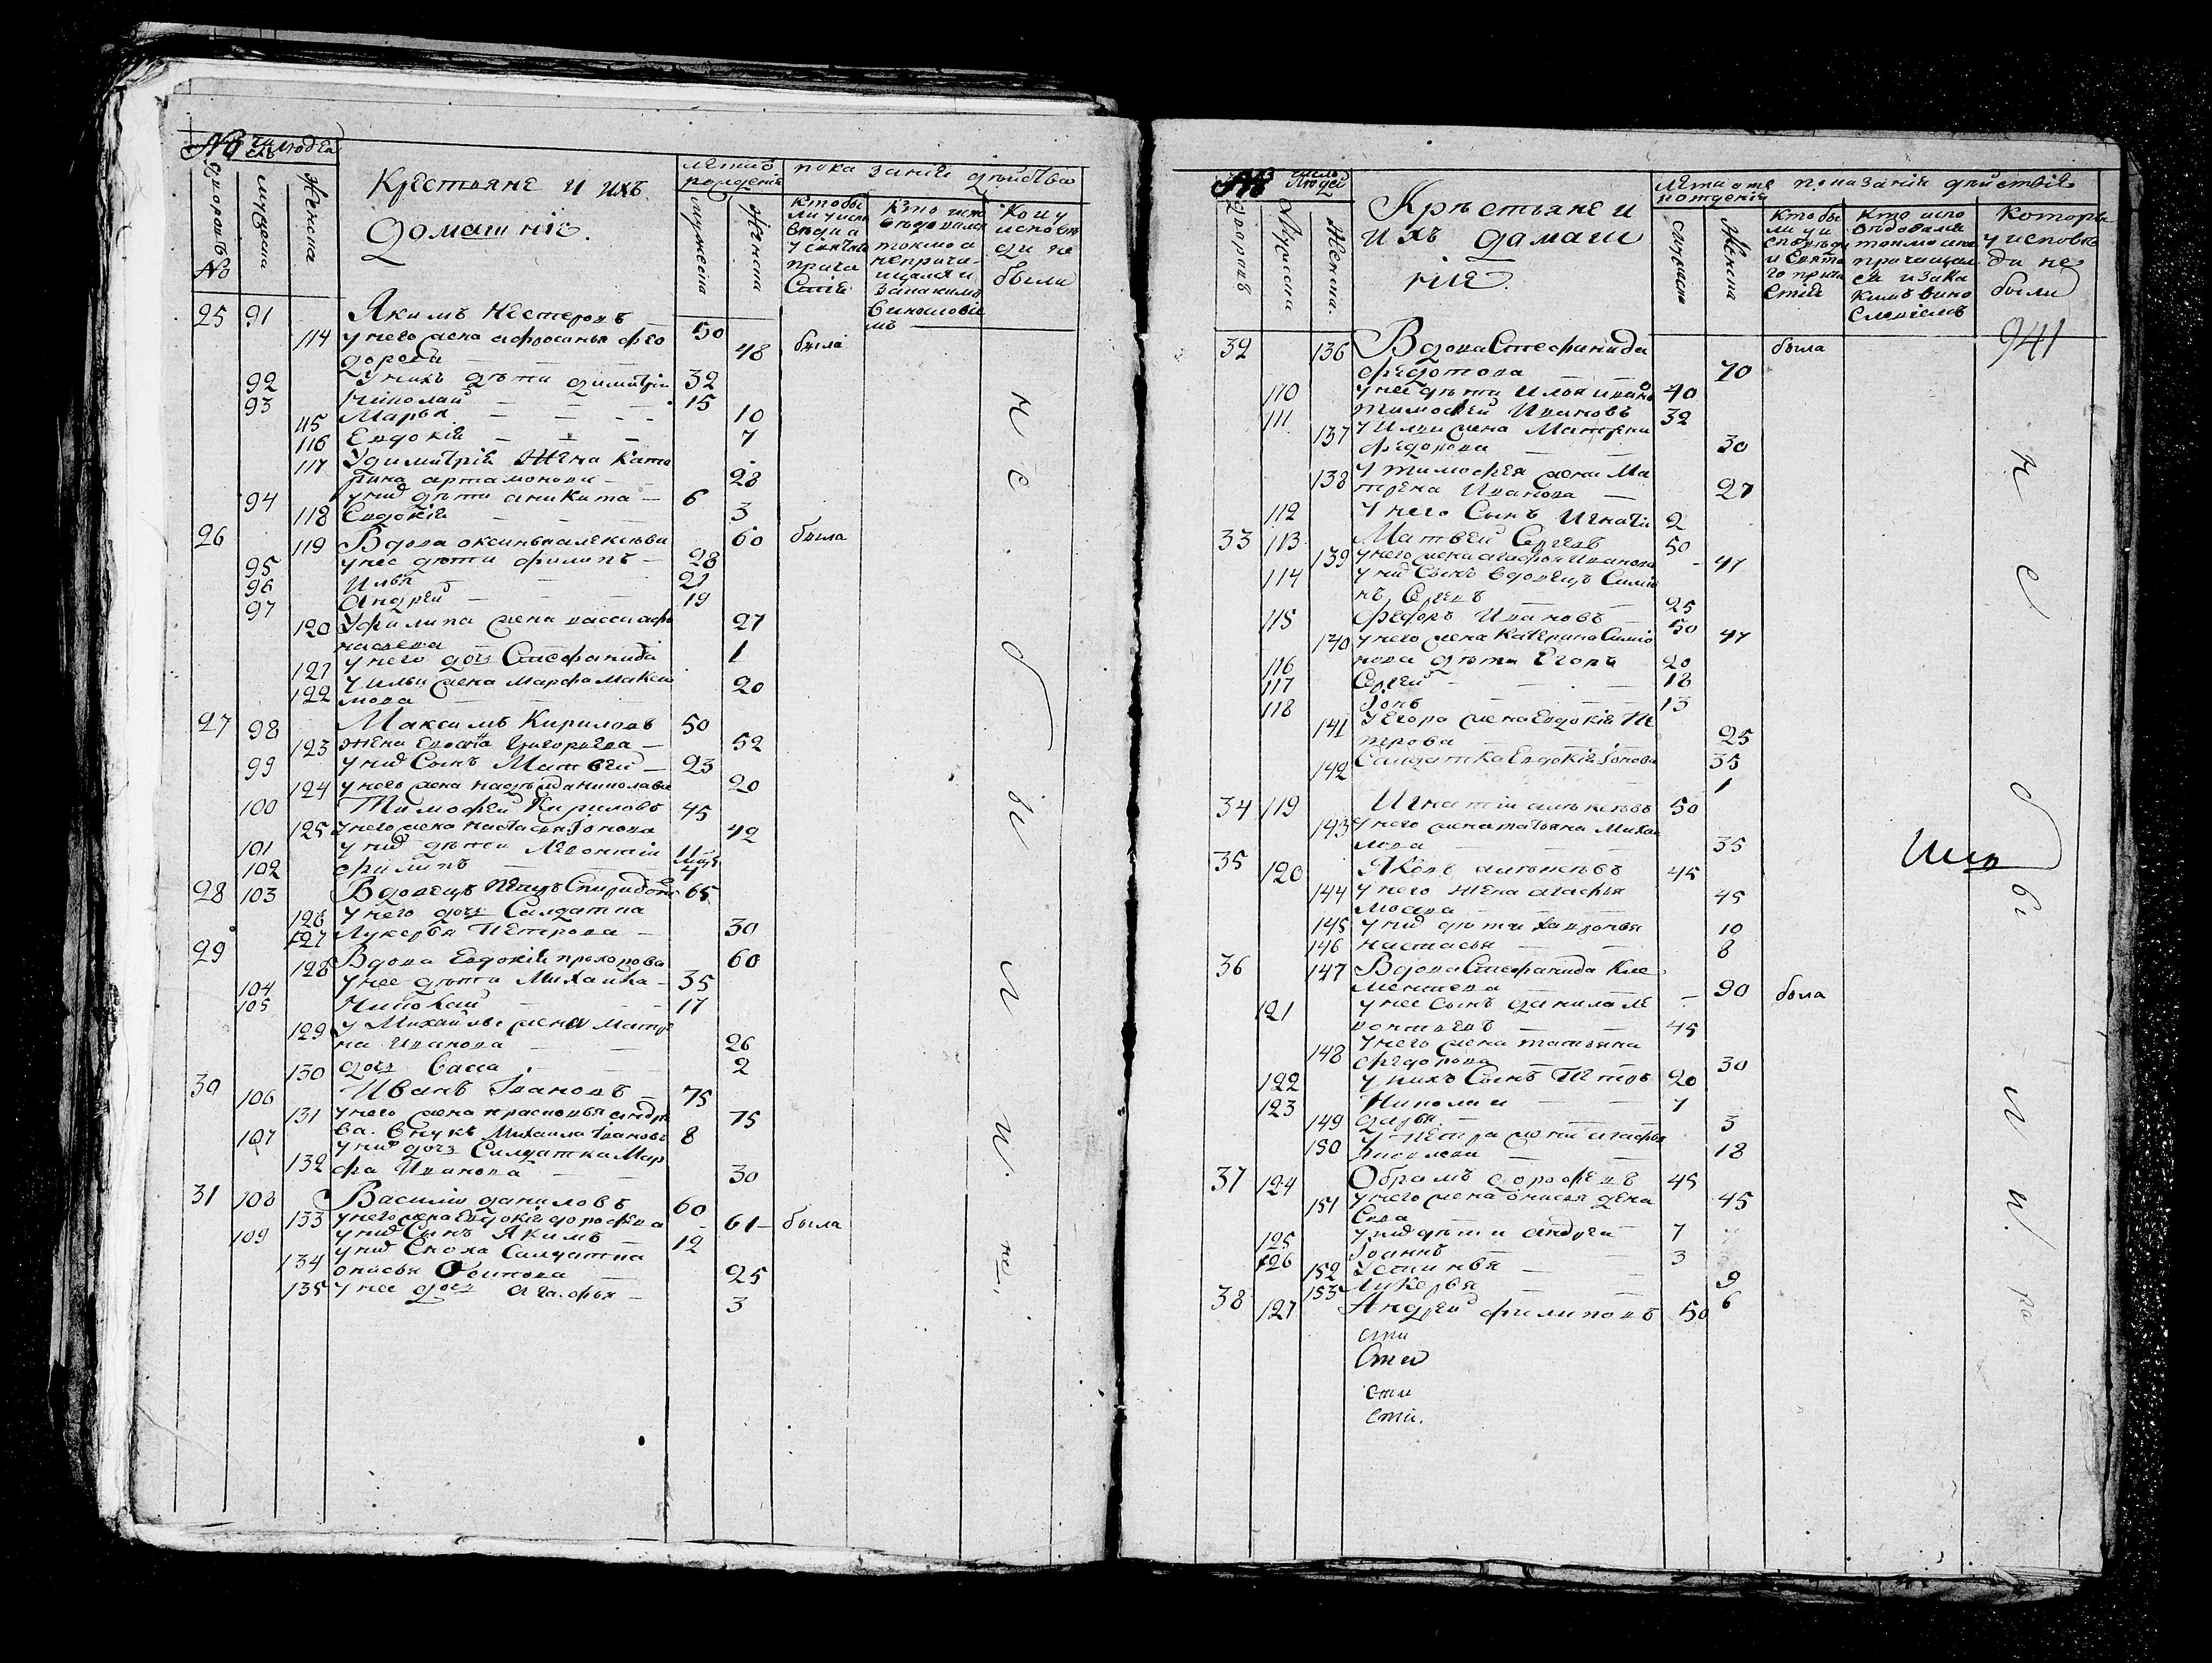 № число людей
Крестьяне и ихъ
домашнiе.
лета от рожденiя
показанiи действа
дворовъ
№
мужеска
женска
мужеска
женска
Кто бы
ли у испо
веди и
у святаго
прича
стiя
Кто испо
ведовался
токмо а
не прича-
щался и
за какимъ
винословiе
мъ
Кои у
исповѣ
ди не
были
25 91 Якимъ Нестеровъ 50
114 у него жена афросинья фео
дорова 48 была
92 У нихъ дѣти Димитрiи 32
93 Николай 15
115 Марья 10
116 Евдокiя 7
117 У димитрiя жена Кате
рина артамонова 28
94 у них дѣти аникита 6
118 Евдокiя 3
26 119 Вдова оксинья алексѣева 60 была
95 у нее дѣти филипъ 28
96 Илья 21
97 Андрей 19
120 У филипа жена васса афо
насьева 27
121 у него дочь Стефанида 1
122 у ильи жена марфа макси
мова 20
27 98 Максимъ Кириловъ 50
123 жена Григорьева 52
99 у них Сынъ Матвей 23
124 у него жена надежда николаева 20
100 Тимофей Кириловъ 45
125 у него жена настасья Iонова 42
101 у них дѣти Леонтiи 11
102 филипъ 4
28 103 Вдовецъ Петръ Спиридоновъ 65
126 у него дочь Салдатка
127 Лукерья Петрова 30
29 128 Вдова Евдокiя прохорова 60
104 у нее дѣти Михаила 35
105 Николай 17
129 У Михайлы жена матре
на Иванова 26
130 дочь Васса 2
30 106 Иванъ Iвановъ 75
131 у него жена прасковья андрѣ
ва. 75
107 внукъ Михаила Iвановъ 8
132 у них дочь Салдатка Мар
фа Иванова 30
31 108 Василiи даниловъ 60
133 у него жена Евдокiя дорофѣева 61 была
109 у них Сынъ Якимъ 12
134 у них Сноха Салдатка
онисья Осипова 25
135 у нее дочь агафья 3
н
е
б
ы
л
и.
№ число людей
Крѣстьяне и
ихъ домаш
нiе.
лѣта отъ
рожденiя
показанiя дѣйствiя
дворовъ
Мужеска
Женска.
мужеска
Женска
Кто бы
ли у и
споведи
и Свята
го прича
стiя
Кто испо
ведовался
токмо а не
причащал
ся и за ка
кимъ вино
словiемъ
Которы
у исповѣ
ди не
были
941
32 136 Вдова Стефанида
федотова 70 была
110 у нее дѣти Илья иванов 40
111 тимофей Ивановъ 32
137 у Ильи жена Матрена
федорова 30
138 у тимофея жена Ма
трена Иванова 27
112 у него Сынъ Игнатiи 2
33 113 Матвей Сергеевъ 50
139 у него жена агафья Иванова 47
114 у них Сынъ вдовецъ Симио
нъ 25
115 федоръ Ивановъ 50
140 у него жена Катерина Симио
нова 47
116 дѣти Егоръ 20
117 Сергей 18
118 Iовъ 13
141 У Егора жена Евдокiя Пе
трова 25
142 Салдатка Евдокiя Iонова 35
1
34 119 Игнатiи алѣксѣевъ 50
143 у него жена татьяна Михаи
лова 35
35 120 Яковъ алѣксѣевъ 45
144 у него жена агафья 45
145 у них дѣти 10
146 настасья 8
36 147 Вдова Стефанида Кле
ментьева 90 была
121 у нее сынъ данила Ле
онтьевъ 45
148 у него жена татьяна
федорова 30
122 у нихъ Сынъ Петръ 20
123 Николаи 7
149 дарья 3
150 У Петра жена агафья 18
37 124 Обрамъ дорофѣевъ 45
151 у него жена онисья дени
сова 45
125 у них дѣти андрей 7
126 Iоаннъ 3
152 Устинья 9
153 Лукерья 6
38 127 Андрей филиповъ 50
сти
Сти
сти
сти.
н
е
б
ы
л
и.